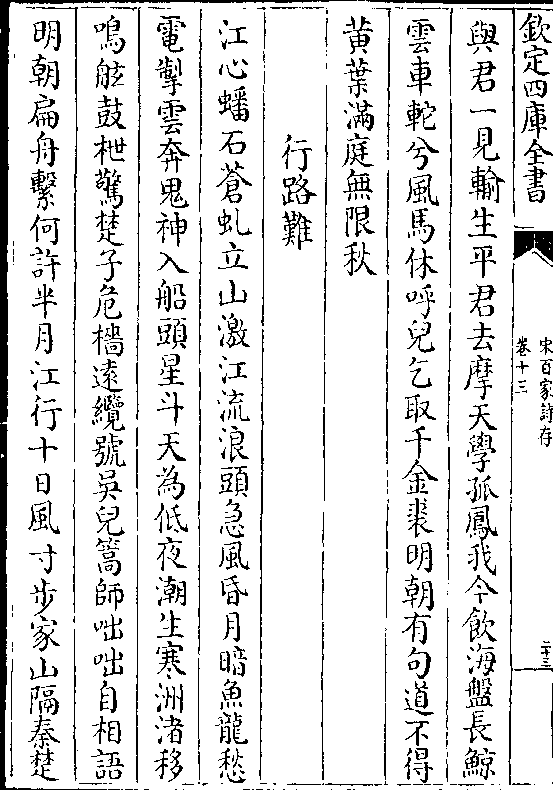 欽定四庫全書
宋百家詩存
卷十三
二十三
與君一見輸生平君去摩天學孤鳳我今飲海盤長鯨
雲車軧兮風馬休呼兒乞取千金裘明朝有句道不得
黄葉滿庭無限秋
行路難
江心蟠石蒼虬立山激江流浪頭急風昏月暗魚龍愁
電掣雲奔鬼神入船頭星斗天為低夜潮生寒洲渚移
鳴舷鼓枻驚楚子危檣遠纜號吳兒篙師咄咄自相語
明朝扁舟繫何許半月江行十日風寸步家山隔秦楚